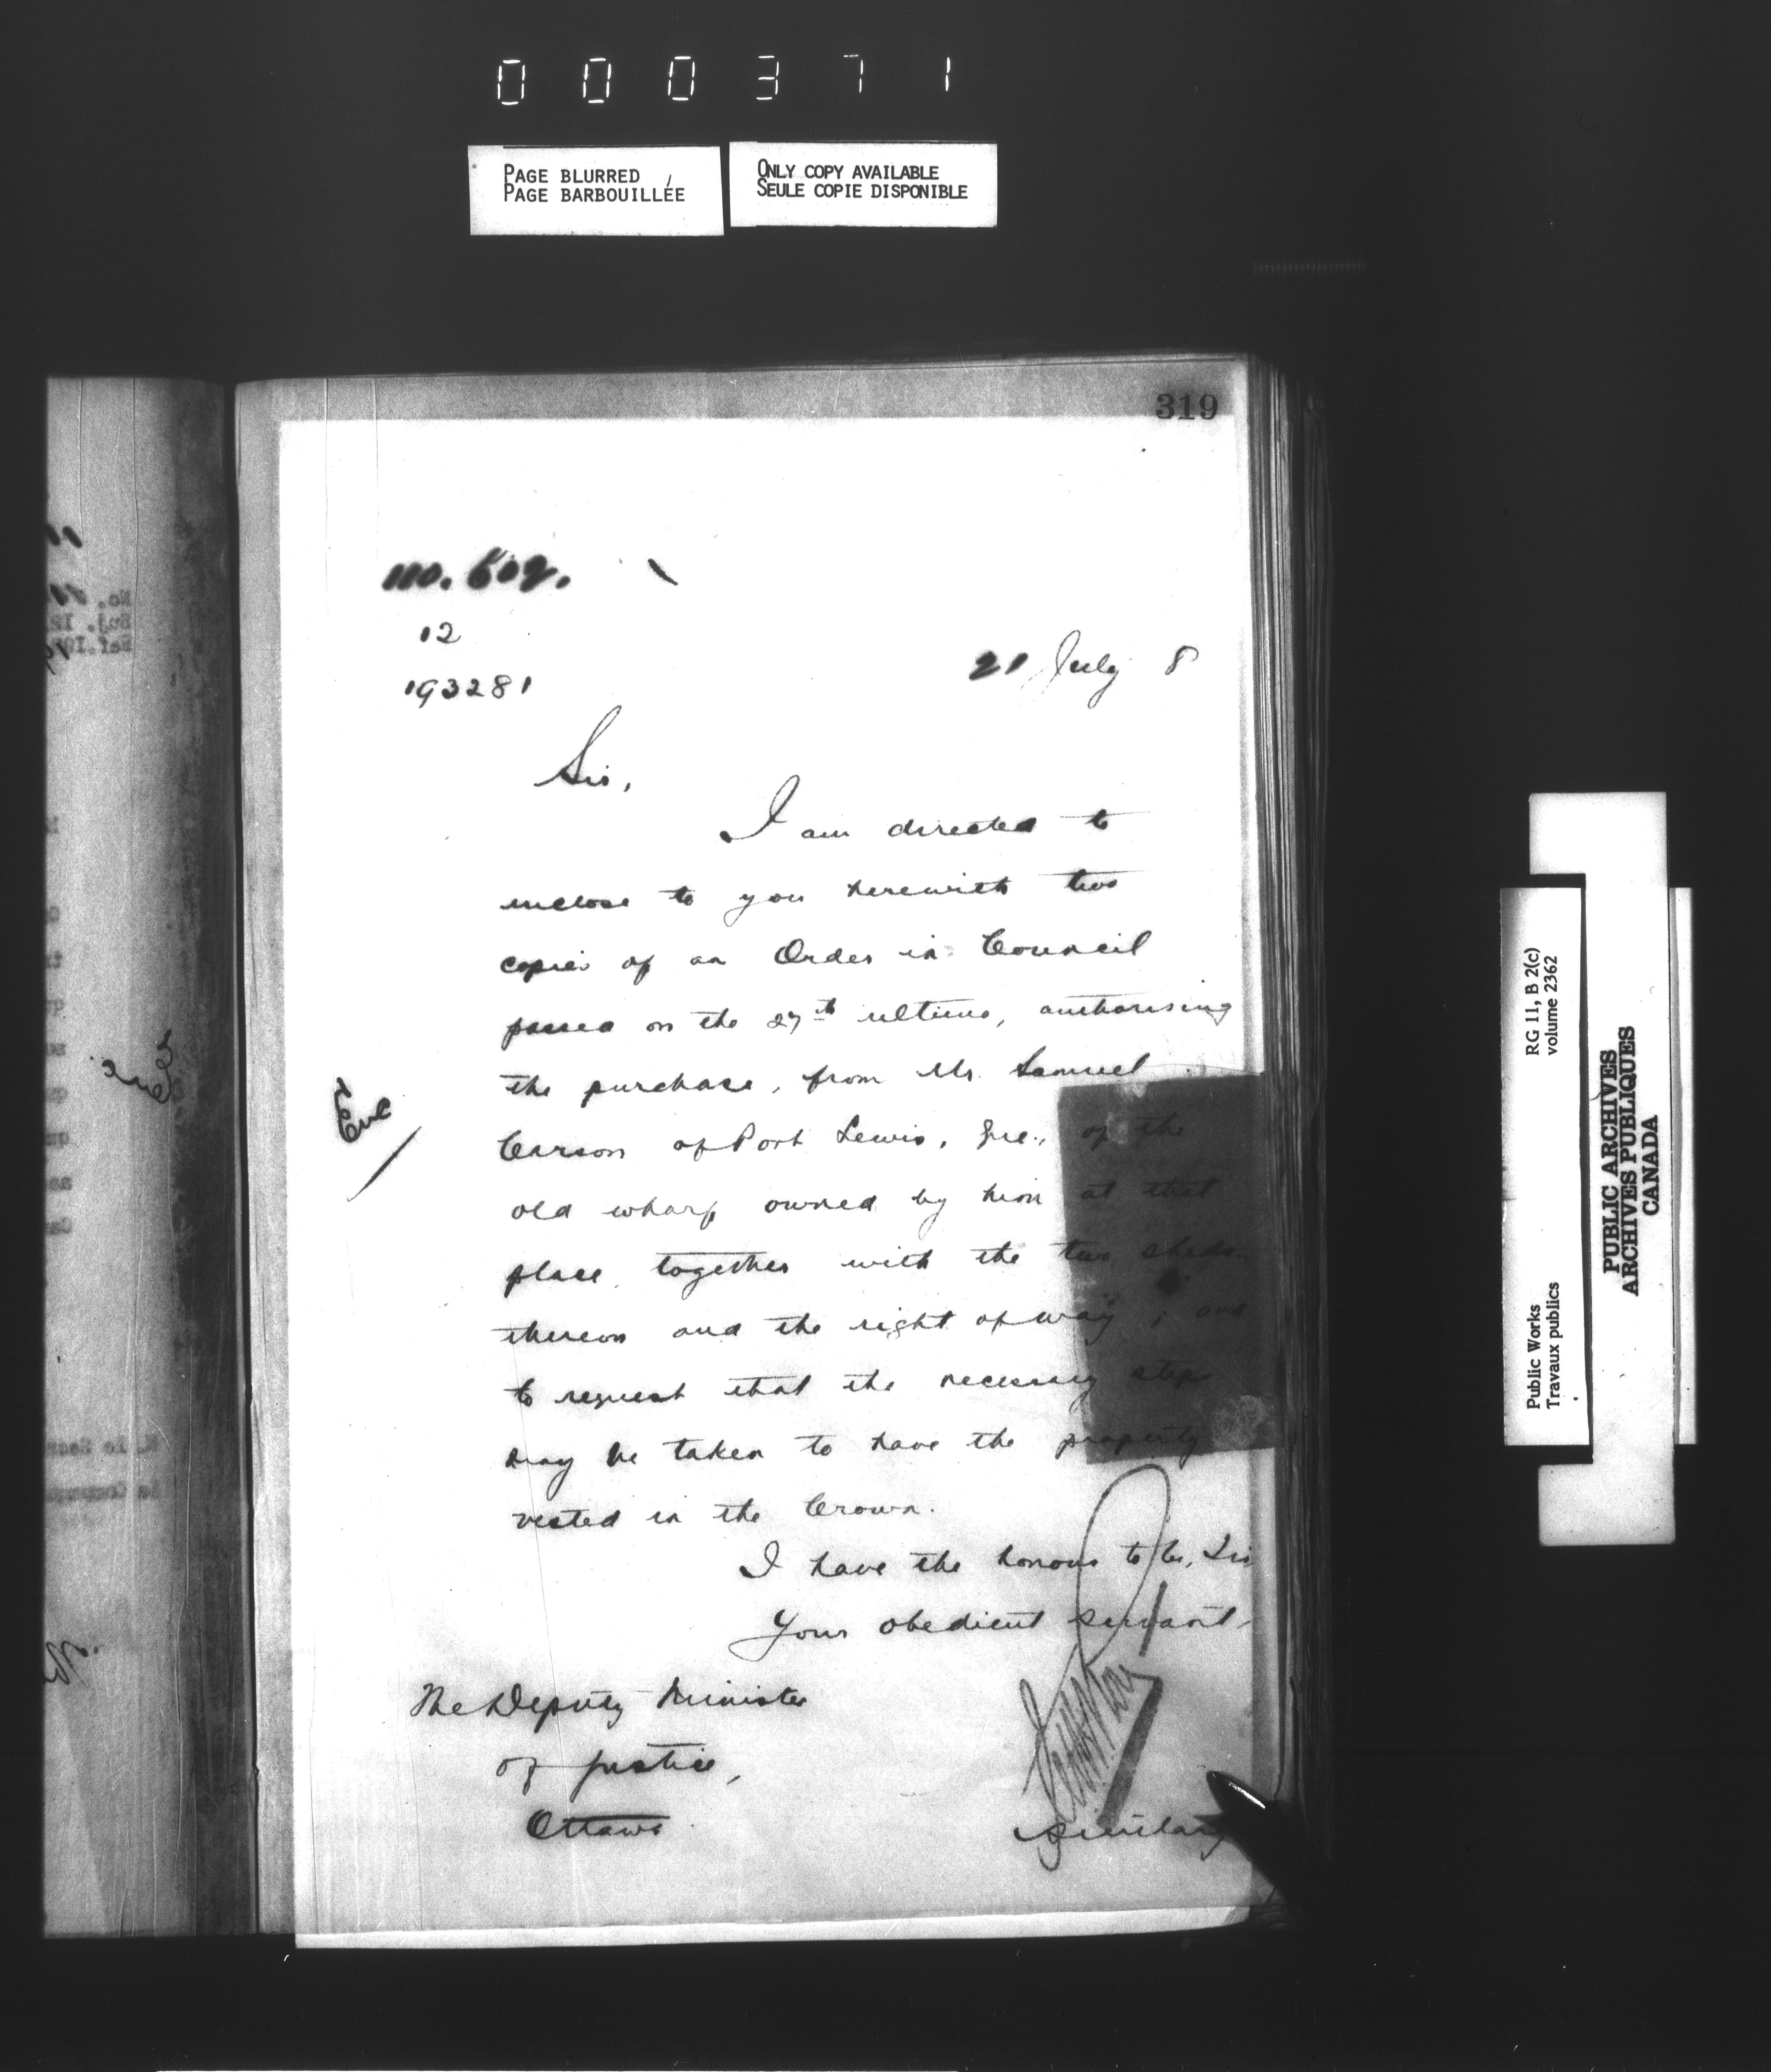 000371
PAGE BLURRED
PAGE BARBOUILLÉE
ONLY COPY AVAILABLE
SEULE COPIE DISPONIBLE
319
no.
12
193281
21 July 8
Sir,
I am directed to
inclose to you herewith two
copies of an Order in Council
passed on the 27th ultimo, authorising
the purchase, from Mr. Samuel
Carson of Port Lewis, Que., of the
old wharf owned by him at that
place, together with the two sheds
thereon and the right of way; and
to request that the necessary steps
may be taken to have the property
vested in the Crown.
I have the honour to be, Sir
Your obedient servant
The Deputy Minister
of Justice,
Ottawa
Secretary
Enc
RG 11, B 2(c)
volume 2362
Public Works
Travaux publics
PUBLIC ARCHIVES
ARCHIVES PUBLIQUES
CANADA